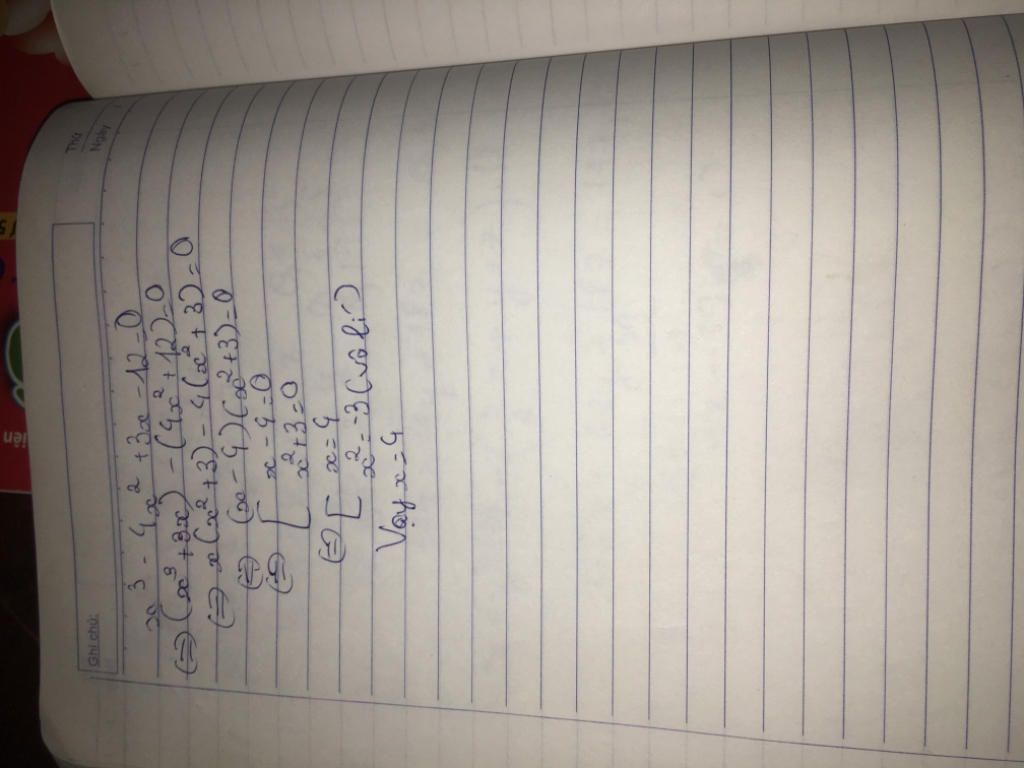 Thứ
Ngày
Ghi chú:
x³ - 4x² + 3x - 12 = 0
(=) (x³ + 3x) - (4x² + 12) = 0
(=) x(x² + 3) - 4(x² + 3) = 0
(=) (x - 4)(x² + 3) = 0
(=) [ x - 4 = 0
x² + 3 = 0
(=) [ x = 4
x² = -3 (vô lí)
Vậy x = 4